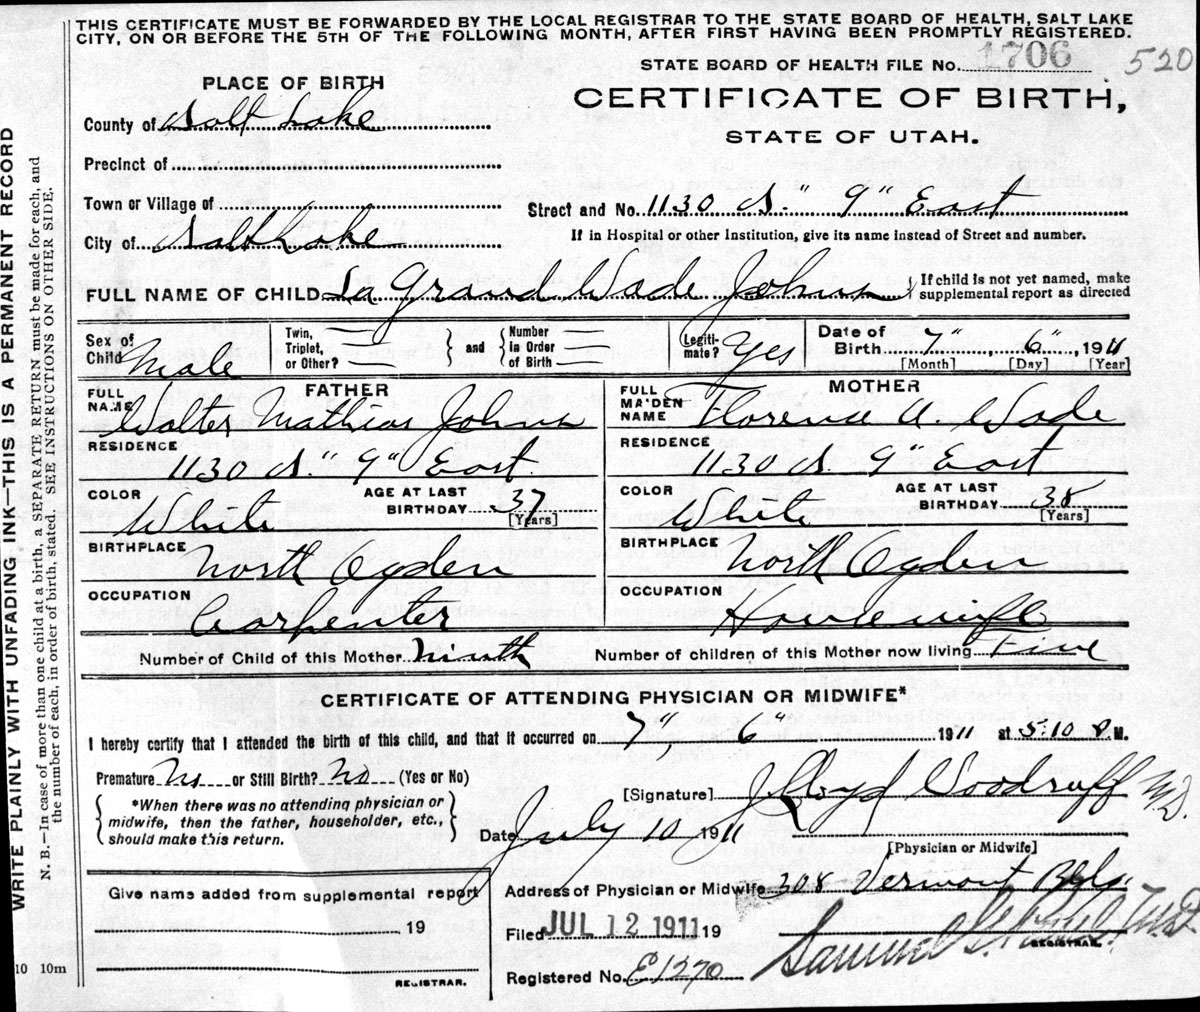 THIS CERTIFICATE MUST BE FORWARDED BY THE LOCAL REGISTRAR TO THE STATE BOARD OF HEALTH, SALT LAKE
CITY, ON OR BEFORE THE 5TH OF THE FOLLOWING MONTH, AFTER FIRST HAVING BEEN PROMPTLY REGISTERED.
STATE BOARD OF HEALTH FILE No. 1706 520
PLACE OF BIRTH
CERTIFICATE OF BIRTH,
STATE OF UTAH.
County of Salt Lake
Precinct of
Town or Village of
Street and No. 1130 S. " 9" East
City of Salt Lake
If in Hospital or other Institution, give its name instead of Street and number.
FULL NAME OF CHILD La Grand Wade Johns { If child is not yet named, make
supplemental report as directed
Sex of Child Male
Twin, Triplet, or Other?
and
Number in Order of Birth
Legiti-mate? Yes
Date of Birth 7", 6", 1911
[Month] [Day] [Year]
FATHER
FULL NAME Walter Mathias Johns
MOTHER
FULL MAIDEN NAME Florence A. Wade
RESIDENCE 1130 S. " 9" East
RESIDENCE 1130 S. 9" East
COLOR White AGE AT LAST BIRTHDAY 37 [Years]
COLOR White AGE AT LAST BIRTHDAY 38 [Years]
BIRTHPLACE North Ogden
BIRTHPLACE North Ogden
OCCUPATION Carpenter
OCCUPATION Housewife
Number of Child of this Mother Ninth
Number of children of this Mother now living Five
CERTIFICATE OF ATTENDING PHYSICIAN OR MIDWIFE*
I hereby certify that I attended the birth of this child, and that it occurred on 7", 6" 1911 at 5:10 M.
Premature No or Still Birth? No (Yes or No)
*When there was no attending physician or
midwife, then the father, householder, etc.,
should make this return.
[Signature] J. Lloyd Woodruff M.D.
Date July 10 1911
[Physician or Midwife]
Give name added from supplemental report
19
REGISTRAR.
Address of Physician or Midwife 308 Vermont Bldg.
Filed JUL 12 1911 19
Samuel
REGISTRAR.
Registered No. E1270
WRITE PLAINLY WITH UNFADING INK—THIS IS A PERMANENT RECORD
N. B.—In case of more than one child at a birth, a SEPARATE RETURN must be made for each, and
the number of each, in order of birth, stated. SEE INSTRUCTIONS ON OTHER SIDE.
10 10m